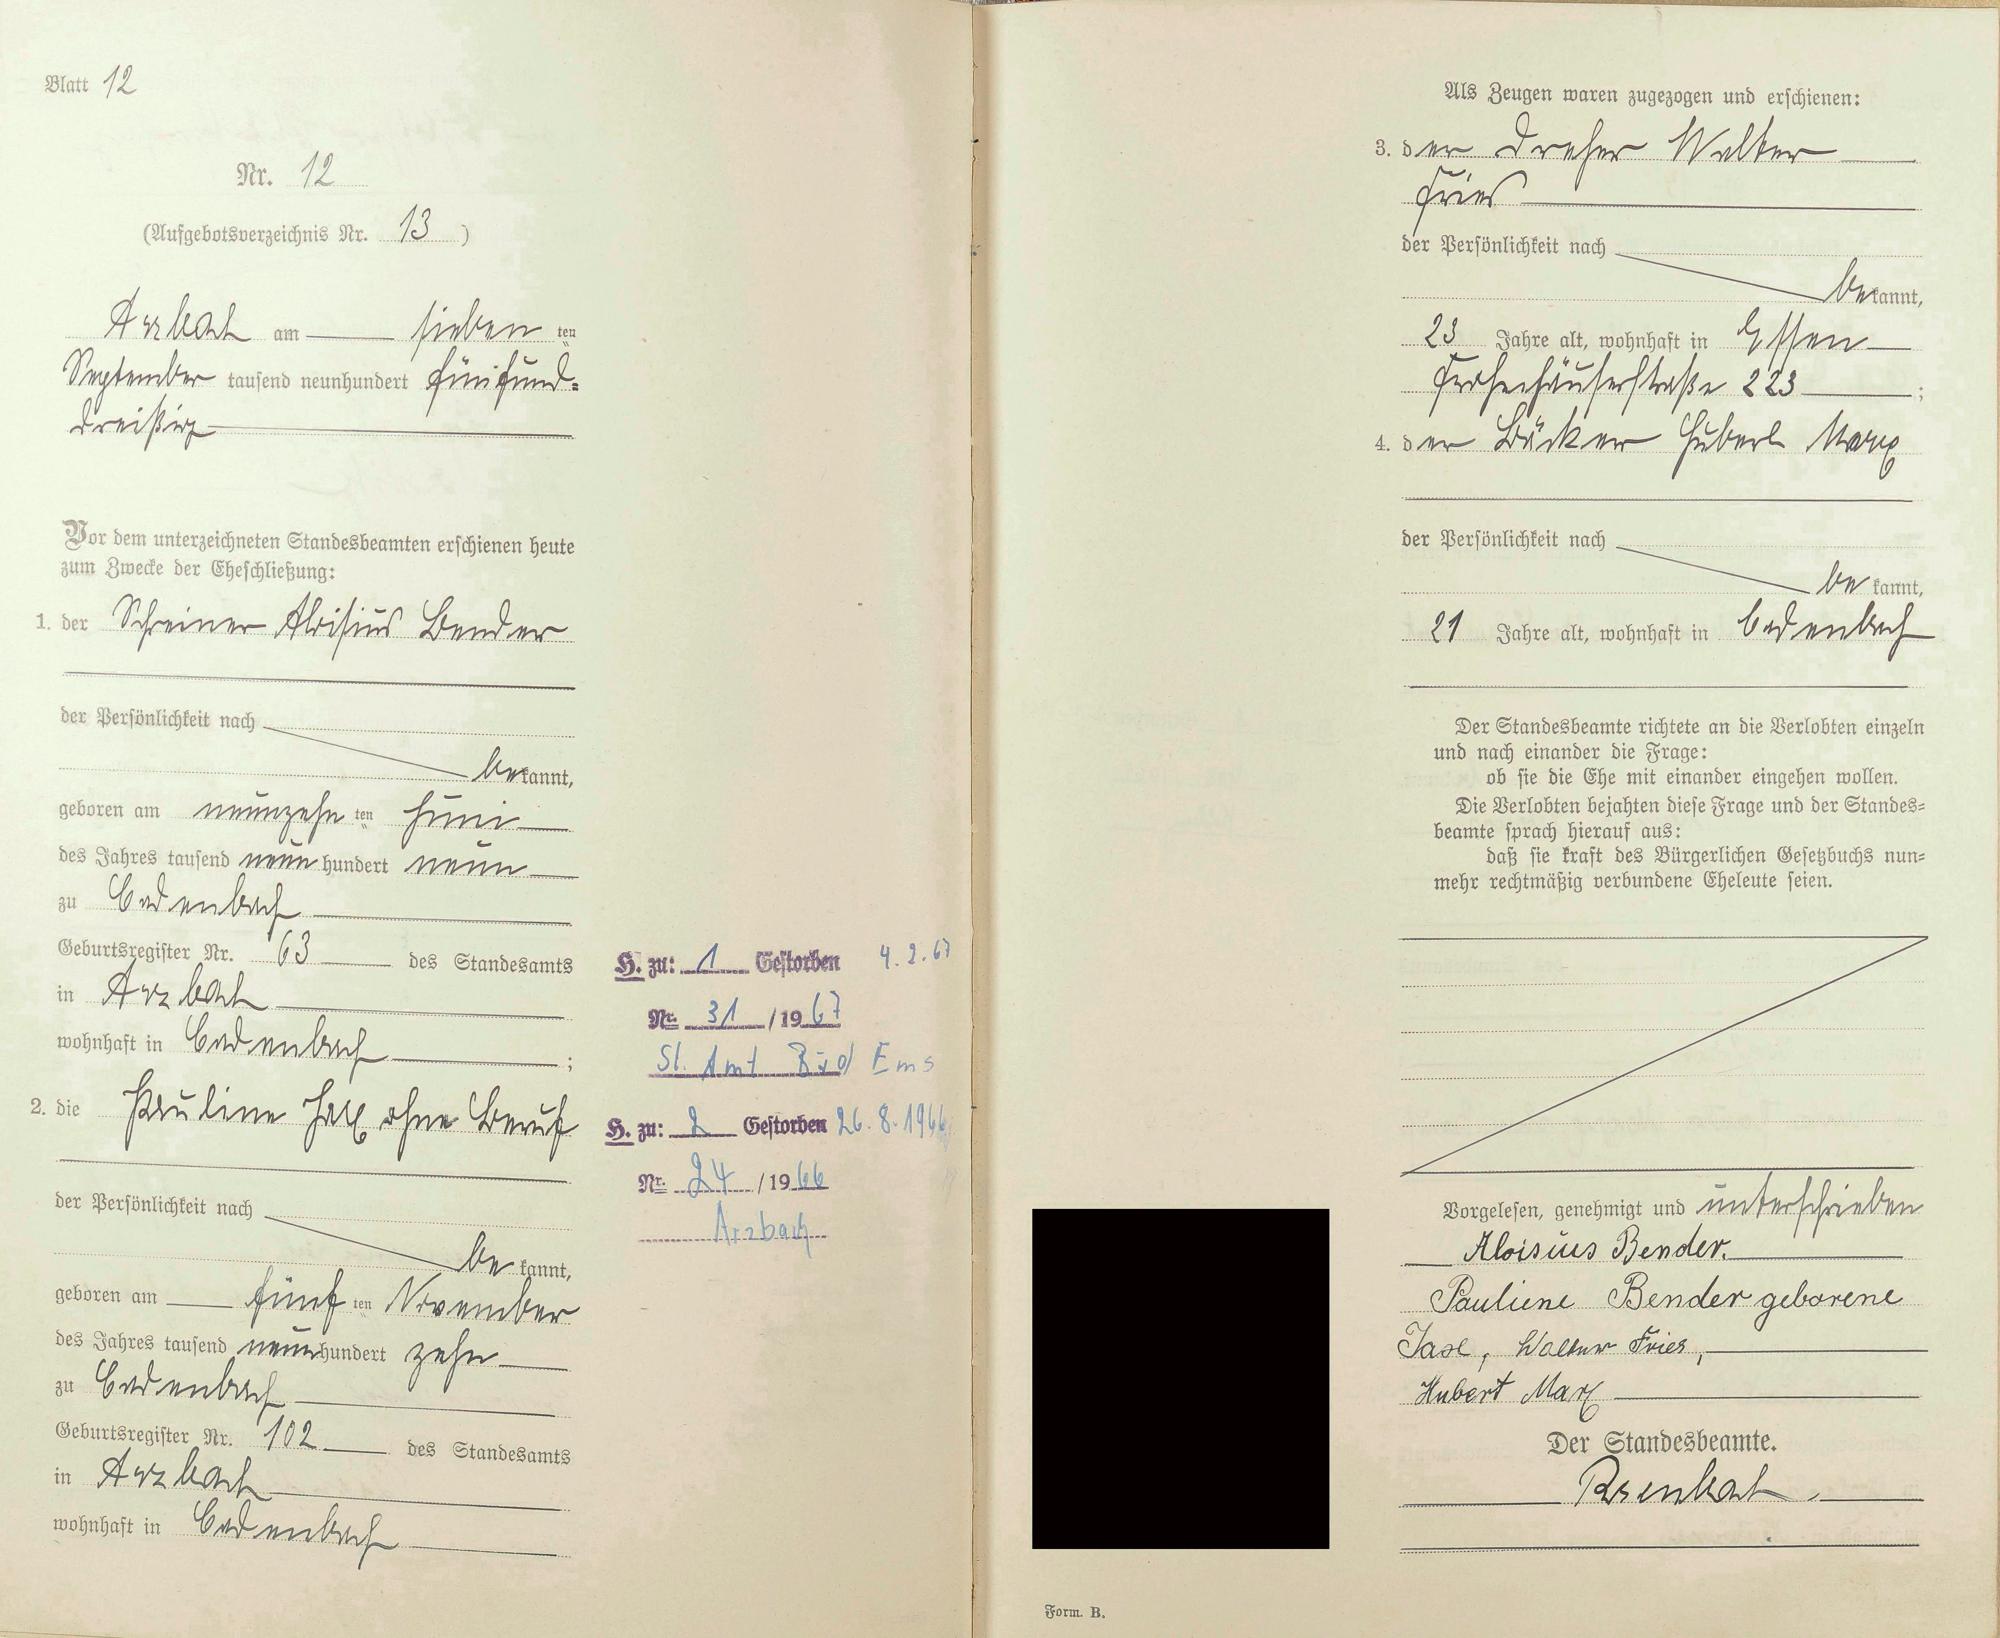 Blatt 12
Nr. 12
(Aufgebotsverzeichnis Nr. 13 )
Arzbach am sieben ten
September tausend neunhundert fünfund-
dreißig
Vor dem unterzeichneten Standesbeamten erschienen heute
zum Zwecke der Eheschließung:
1. der Schreiner Aloisius Bender
der Persönlichkeit nach
be kannt,
geboren am neunzehn ten Juni
des Jahres tausend neun hundert neun
zu Cadenbach
Geburtsregister Nr. 63 des Standesamts
in Arzbach
wohnhaft in Cadenbach ;
2. die Pauline Jax ohne Beruf
der Persönlichkeit nach
be kannt,
geboren am fünf ten November
des Jahres tausend neun hundert zehn
zu Cadenbach
Geburtsregister Nr. 102 des Standesamts
in Arzbach
wohnhaft in Cadenbach
H. zu: 1 Gestorben 4.2.67
Nr. 31 /19 67
St. Amt Bad Ems
H. zu: 2 Gestorben 26.8.1966
Nr. 24 /19 66
Arzbach
Als Zeugen waren zugezogen und erschienen:
3. der Dreher Walter
Fries
der Persönlichkeit nach
be kannt,
23 Jahre alt, wohnhaft in Essen
Frohnhäuserstraße 223 ;
4. der Bäcker Hubert Marx
der Persönlichkeit nach
be kannt,
21 Jahre alt, wohnhaft in Cadenbach
Der Standesbeamte richtete an die Verlobten einzeln
und nach einander die Frage:
ob sie die Ehe mit einander eingehen wollen.
Die Verlobten bejahten diese Frage und der Standes-
beamte sprach hierauf aus:
daß sie kraft des Bürgerlichen Gesetzbuchs nun-
mehr rechtmäßig verbundene Eheleute seien.
Vorgelesen, genehmigt und unterschrieben
Aloisius Bender.
Pauliene Bender geborene
Jax, Walter Fries,
Hubert Marx
Der Standesbeamte.
Form. B.